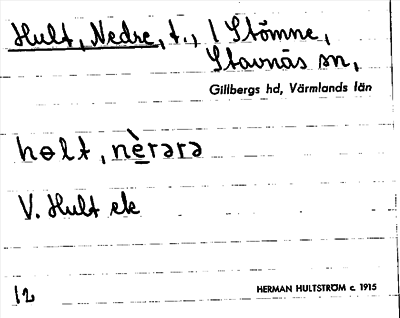 Hult, Nedre, t., l Stömne,
Stavnäs sn,
Gillbergs hd, Värmlands län
hɵlt, nèrərə
V. Hult ek
12
HERMAN HULTSTRÖM c. 1915